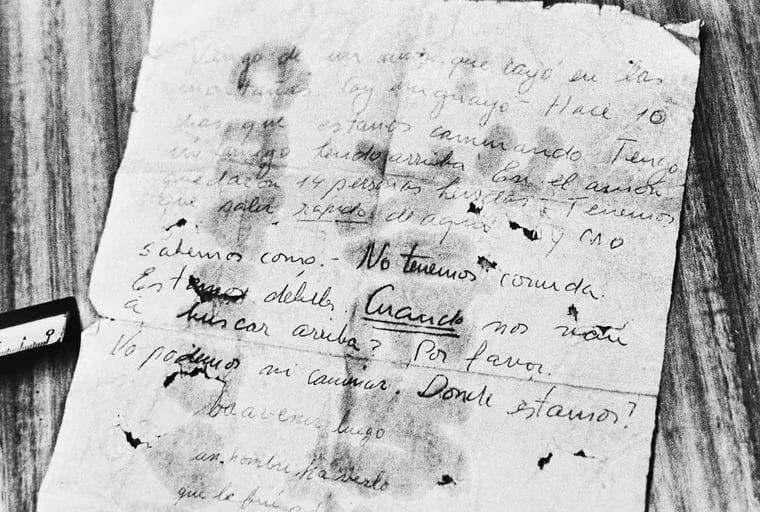 Vengo de un avión que cayó en las
montañas. Soy uruguayo - Hace 10
dias que estamos caminando Tengo
un amigo herido arriba. En el avión
quedaron 14 personas heridas - Tenemos
que salir rapido de aquí y no
sabemos como. - No tenemos comida.
Estamos débiles. Cuando nos van
a buscar arriba? Por favor.
No podemos ni caminar. Donde estamos?
luego
un hombre a verlo
que le